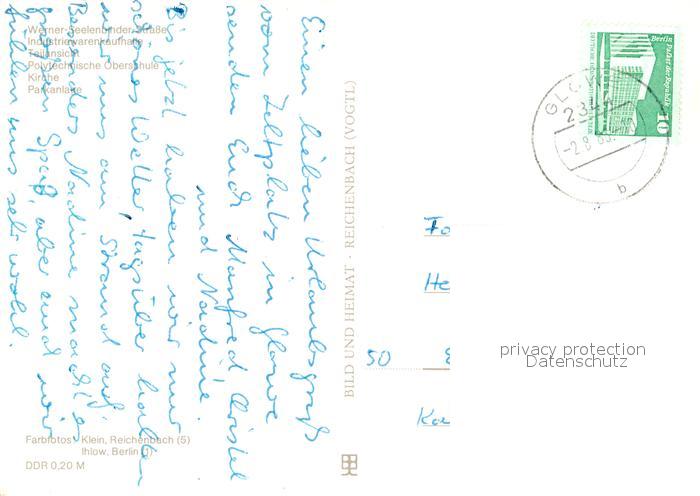 Werner-Seelenbinder-Straße
Industriewarenkaufhalle
Teilansicht
Polytechnische Oberschule
Kirche
Parkanlage
Einen lieben Urlaubsgruß
vom Zeltplatz in Glowe
senden Euch Manfred Christel
und Nadine.
Bis jetzt haben wir nur
schönes Wetter, tagsüber halten
wir uns am Strand auf.
Besonders Nadine macht es
großen Spaß, aber auch wir
fühlen uns sehr wohl.
Farbfotos: Klein, Reichenbach (5)
Ihlow, Berlin (1)
DDR 0,20 M
BILD UND HEIMAT · REICHENBACH (VOGTL)
Berlin Palast der Republik
10
GLOWE
-2.8
b
Fa
He
50
privacy protection
Datenschutz